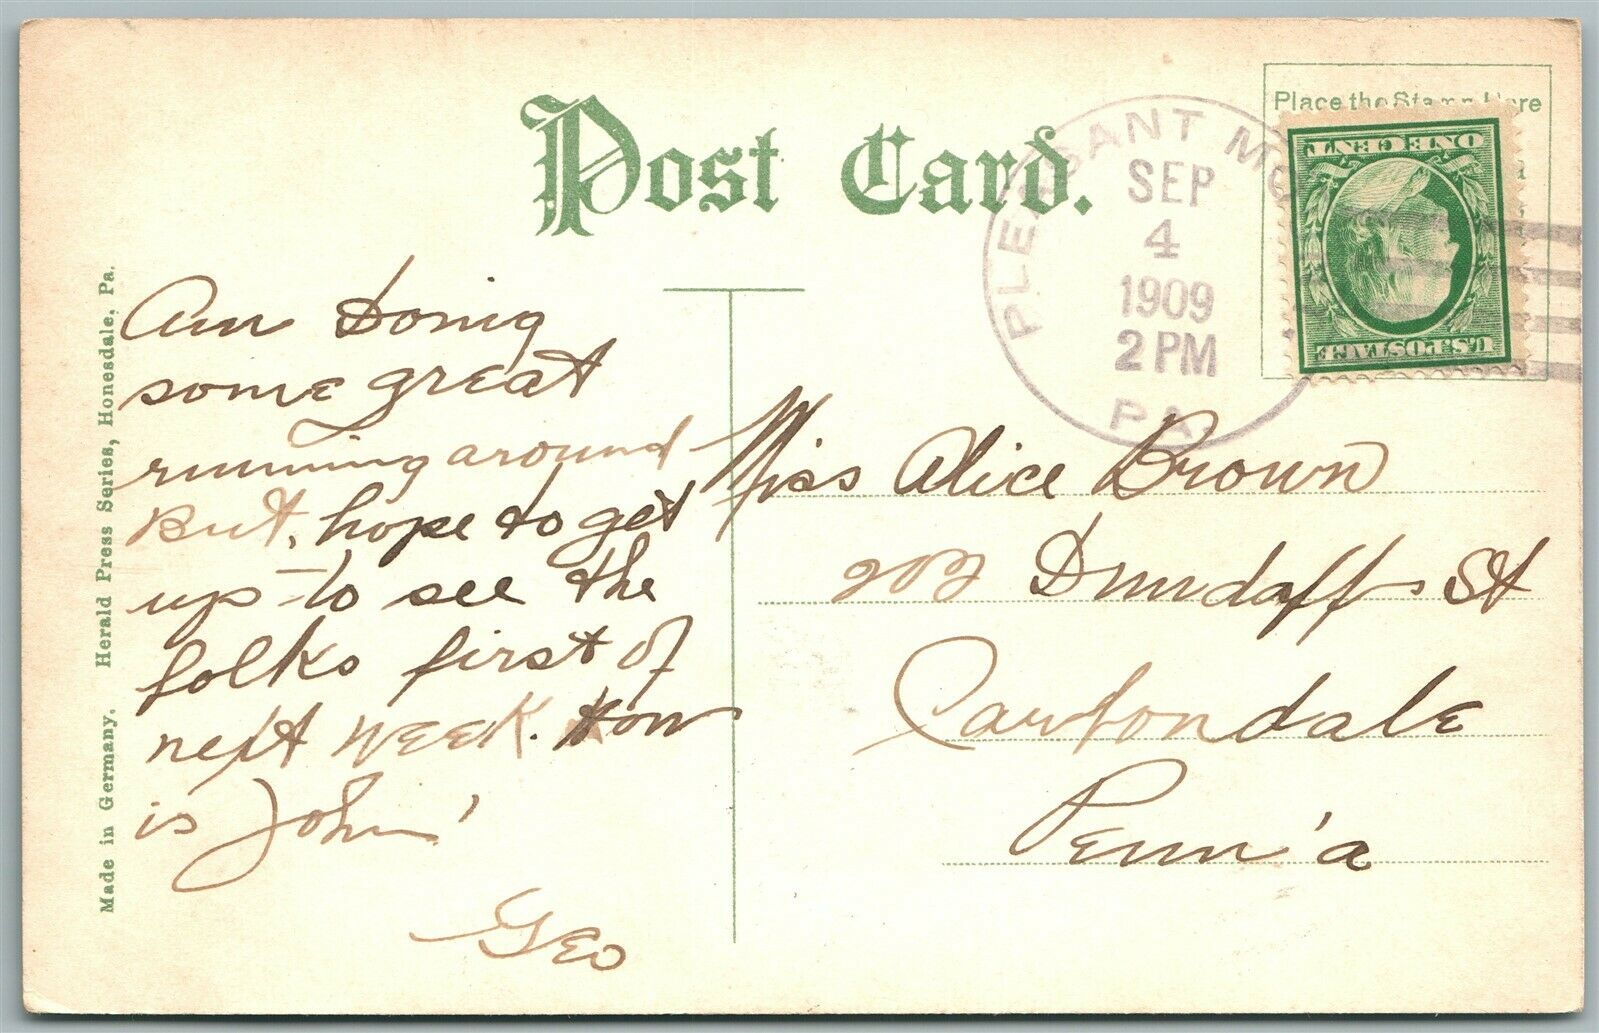 Post Card.
Place the Stamp Here
PLEASANT MO
SEP
4
1909
2 PM
PA.
ONE CENT
U.S. POSTAGE
Am Doing
some great
running around
But, hope to get
up to see the
folks first of
next week. How
is John'
Geo
Miss Alice Brown
202 Dundaff St
Carbondale
Penn'a
Made in Germany. Herald Press Series, Honesdale, Pa.